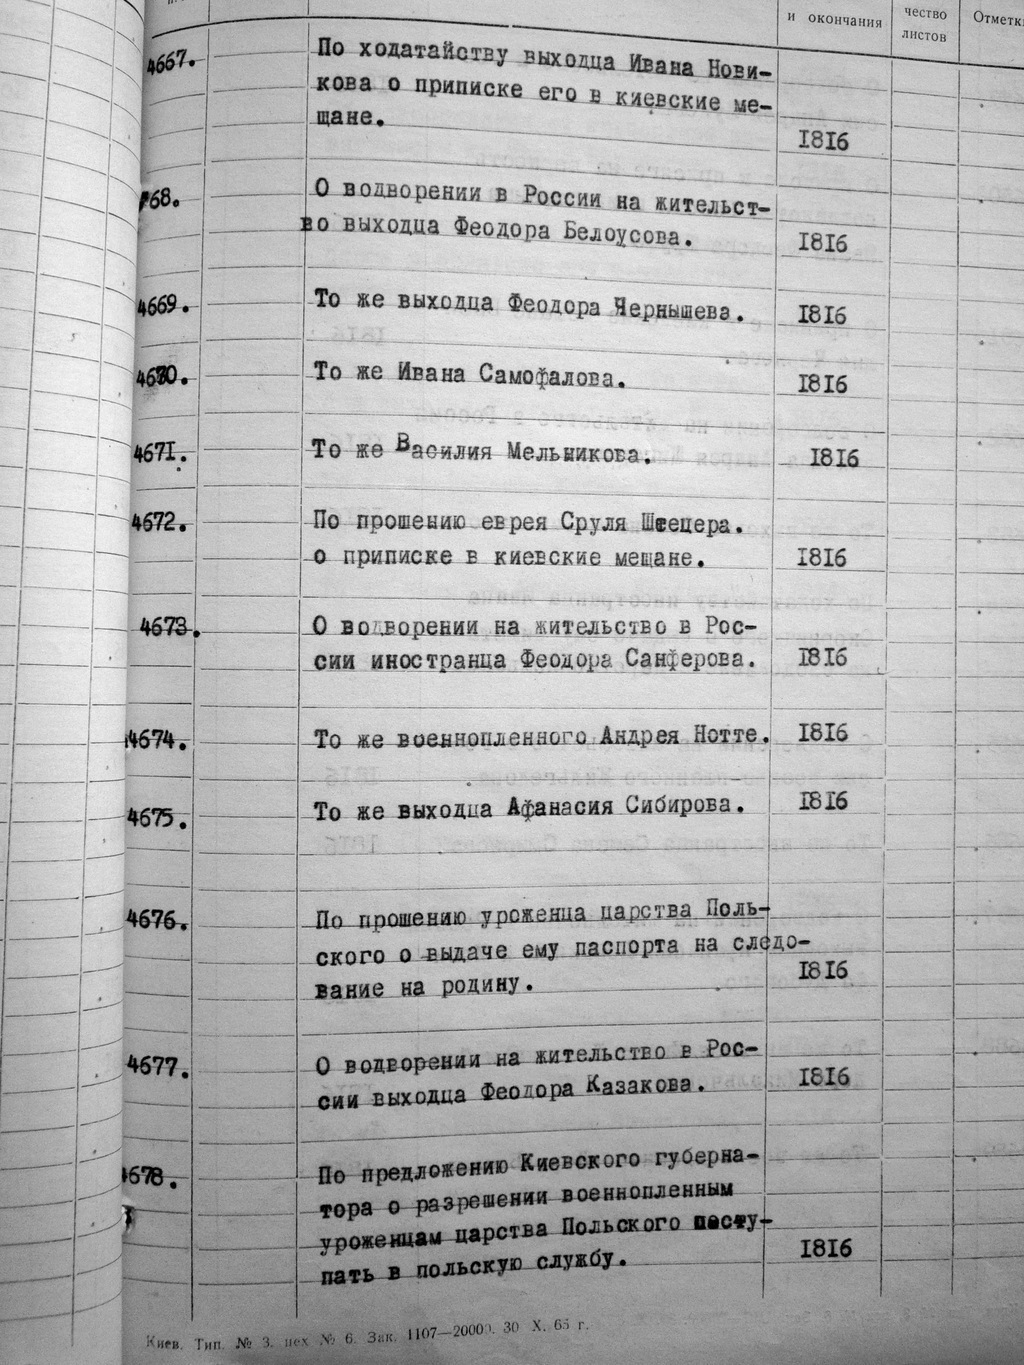 и окончания
чество
листов
Отметк
4667.
По ходатайству выходца Ивана Нови-
кова о приписке его в киевские ме-
щане.
1816
68.
О водворении в России на жительст-
во выходца Феодора Белоусова.
1816
4669.
То же выходца Феодора Чернышева.
1816
4670.
То же Ивана Самофалова.
1816
4671.
То же Василия Мельникова.
1816
4672.
По прошению еврея Сруля Штецера.
о приписке в киевские мещане.
1816
4673.
О водворении на жительство в Рос-
сии иностранца Феодора Санферова.
1816
4674.
То же военнопленного Андрея Нотте.
1816
4675.
То же выходца Афанасия Сибирова.
1816
4676.
По прошению уроженца царства Поль-
ского о выдаче ему паспорта на следо-
вание на родину.
1816
4677.
О водворении на жительство в Рос-
сии выходца Феодора Казакова.
1816
4678.
По предложению Киевского губерна-
тора о разрешении военнопленным
уроженцам царства Польского посту-
пать в польскую службу.
1816
Киев. Тип. № 3. цех № 6. Зак. 1107—20000. 30 X. 65 г.